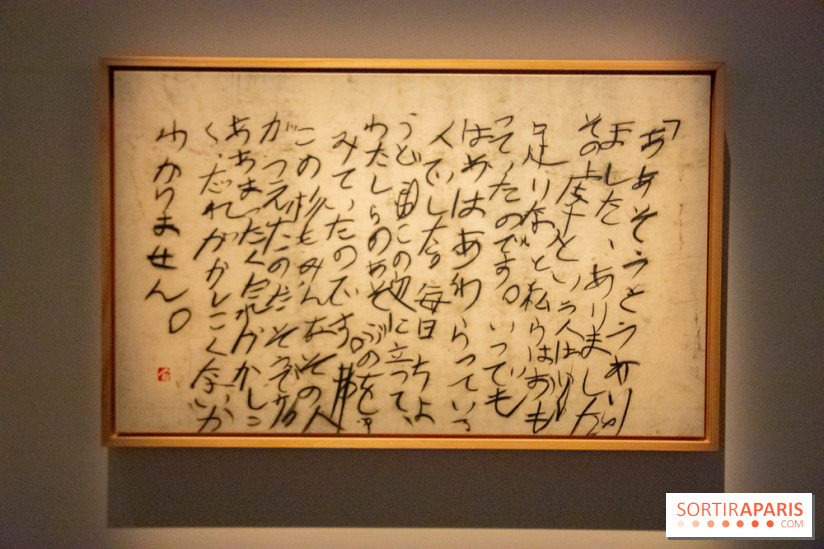 「ああそうそうあり
ました、ありました
その虔十という人は
足りないと私らはおも
っていたのです。いつでも
はあはあわらっている
人でした。毎日ちょ
うどこの辺に立って、
わたしらのあそぶのを
みていたのです。
この杉もみんなその人
がうえたのだそうで
ああまったくだれがかしこ
く、だれがかしこくないか
わかりません。
SORTIRAPARIS
.COM